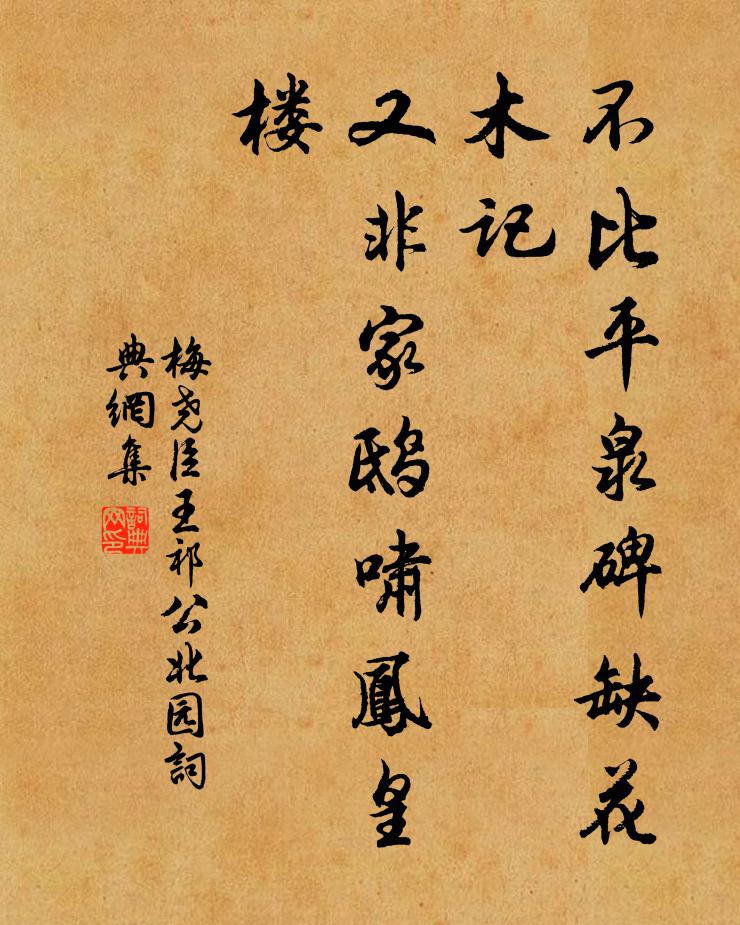 不比平泉碑缺花
木记
又非家鸱啸鳳皇
楼
梅尧臣王祁公北园詞
典網集
詞典网